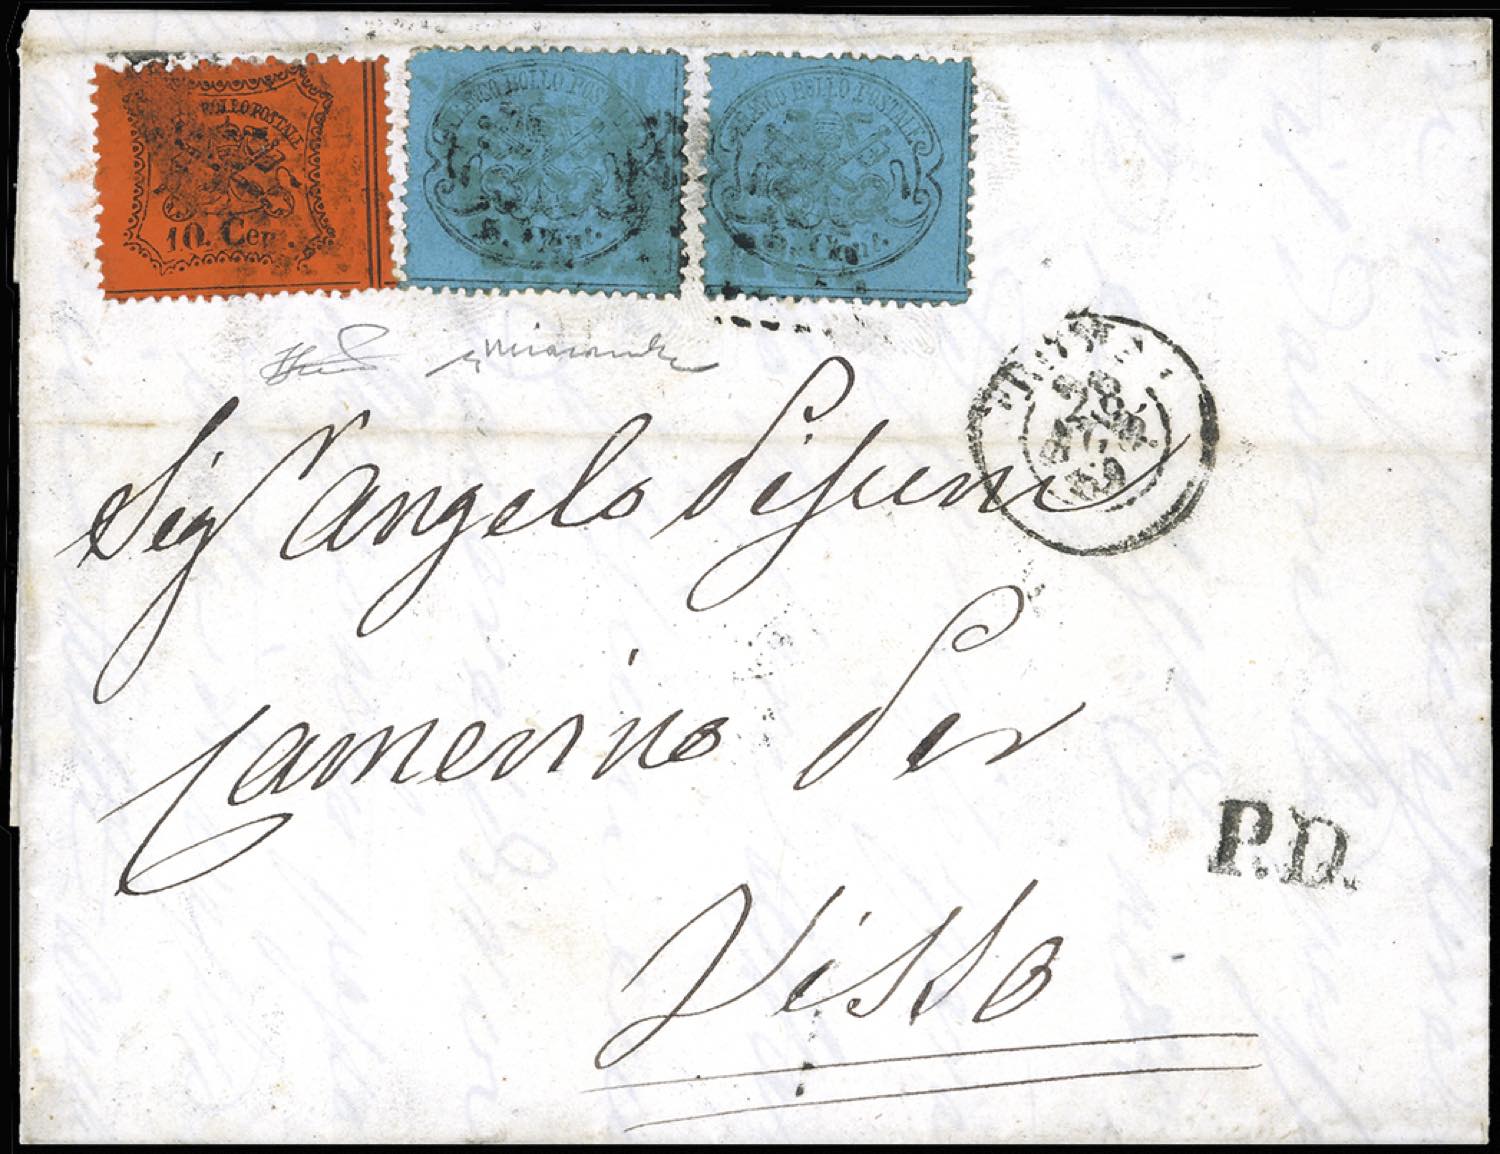 BOLLO POSTALE
10. Cen.
FRANCO BOLLO POSTALE
5. Cent.
FRANCO BOLLO POSTALE
5. Cent.
28
AGO
69
Sigr Angelo
Camerino Per
Visso
P.D.